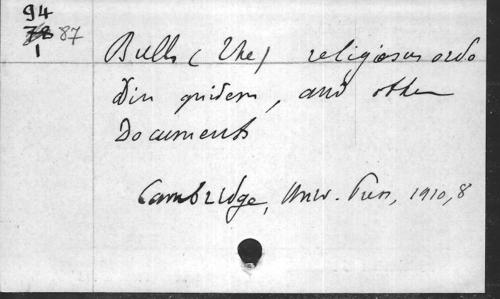 94
87
1
Bulls (The) religiosus ordo
Diu quidem, and other
Documents
Cambridge, Univ. Press, 1910, 8